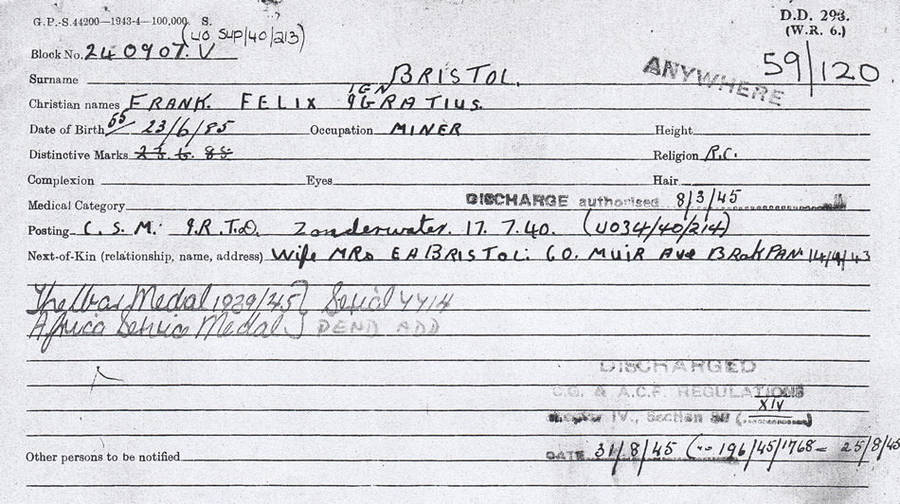 G.P.-S.44200—1943-4—100,000. S.
(UO SUP/40/213)
D.D. 293.
(W.R. 6.)
Block No. 240907.V
59/120
ANYWHERE
Surname BRISTOL.
IGN
Christian names FRANK. FELIX IGRATIUS.
Date of Birth 23/6/85 Occupation MINER Height
Distinctive Marks 23. 6. 85 Religion R.C.
Complexion Eyes Hair
Medical Category DISCHARGE authorised 8/3/45
Posting C. S. M. I.R.T.D. Zonderwater. 17.7.40. (UO34/40/214)
Next-of-Kin (relationship, name, address) Wife MRS E A BRISTOL. 60. MUIR AVE BRAKPAN 14/4/43
The War Medal 1939/45 } Serial 4414
Africa Service Medal } PEND ADD
DISCHARGED
C.G. & A.C.F. REGULATIONS
Chapter IV., Section 30 (XIV)
Other persons to be notified DATE 31/8/45 ( 196/45/1768 = 25/8/45